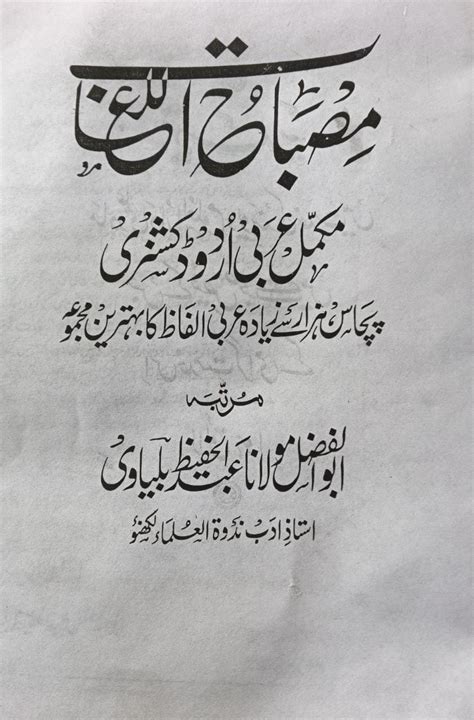 مصباح اللغات
مکمل عربی اردو ڈکشنری
پچاس ہزار سے زیادہ عربی الفاظ کا بہترین مجموعہ
مرتبہ
ابوالفضل مولانا عبدالحفیظ بلیاوی
استاذ ادب ندوۃ العلماء لکھنؤ